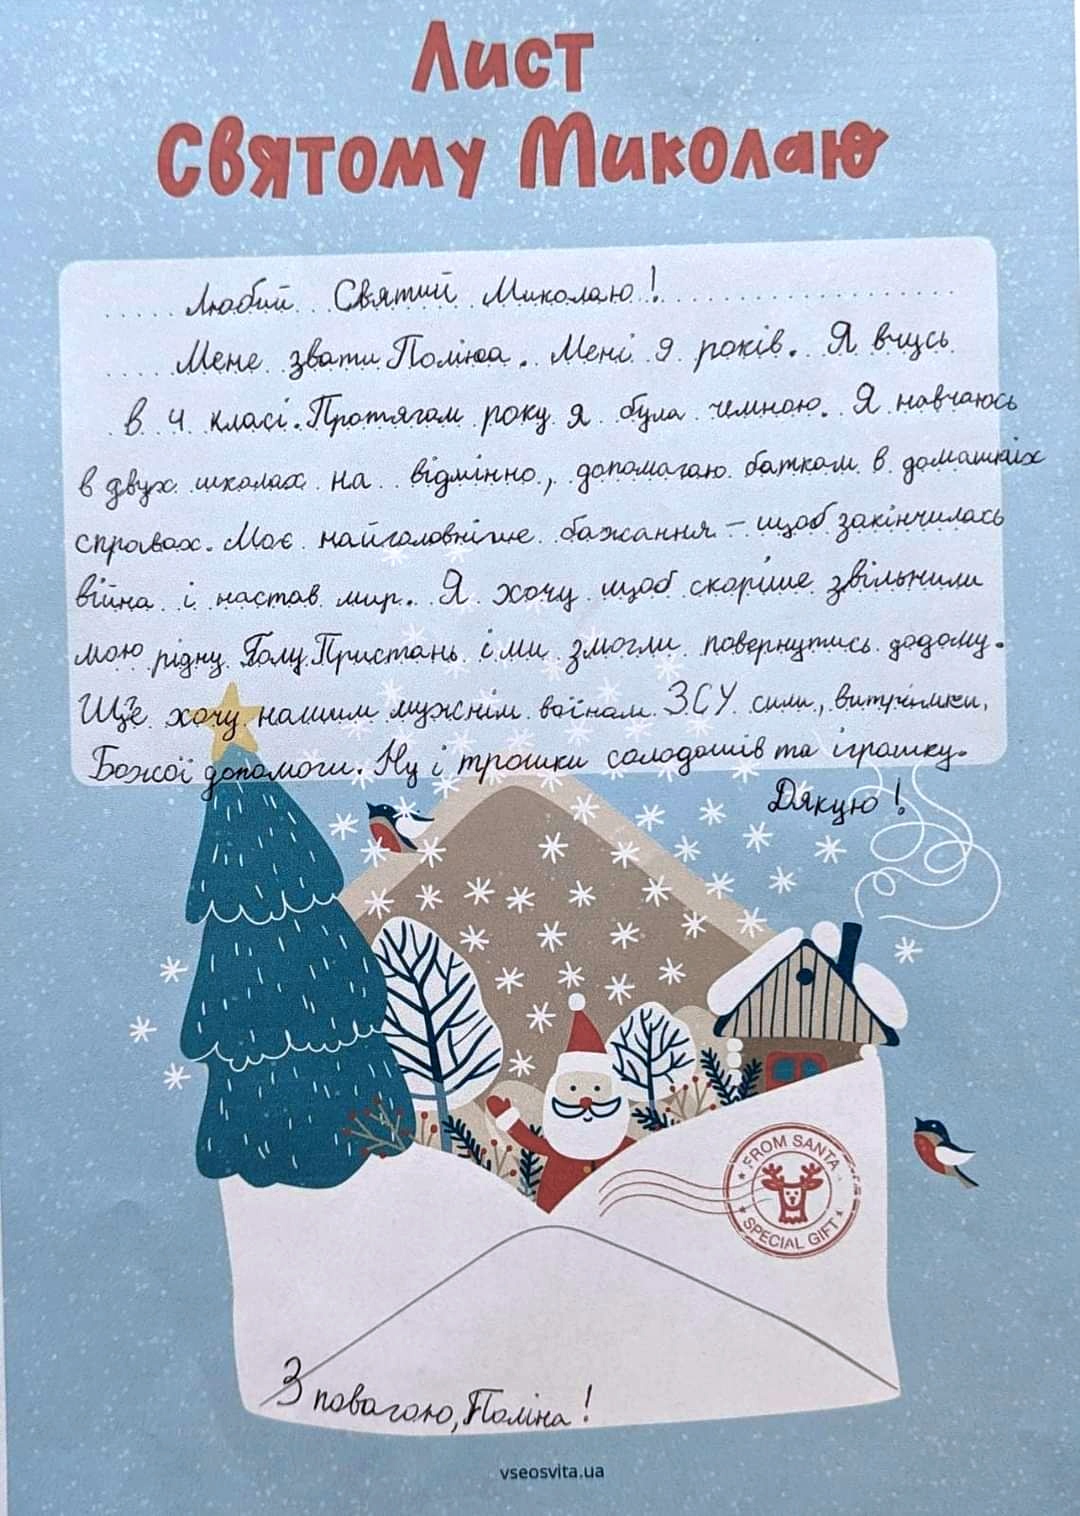 Лист
Святому Миколаю
Любий Святий Миколаю!
Мене звати Поліна. Мені 9 років. Я вчусь
в 4 класі. Протягом року я була чемною. Я навчаюсь
в двух школах на відмінно, допомагаю батькам в домашніх
справах. Моє найголовніше бажання – щоб закінчилась
війна і настав мир. Я хочу щоб скоріше звільнили
мою рідну Голу Пристань і ми змогли повернутись додому.
Ще хочу нашим мужнім воїнам ЗСУ сили, витримки,
Божої допомоги. Ну і трошки солодощів та іграшку.
Дякую!
FROM SANTA
SPECIAL GIFT
З повагою, Поліна!
vseosvita.ua